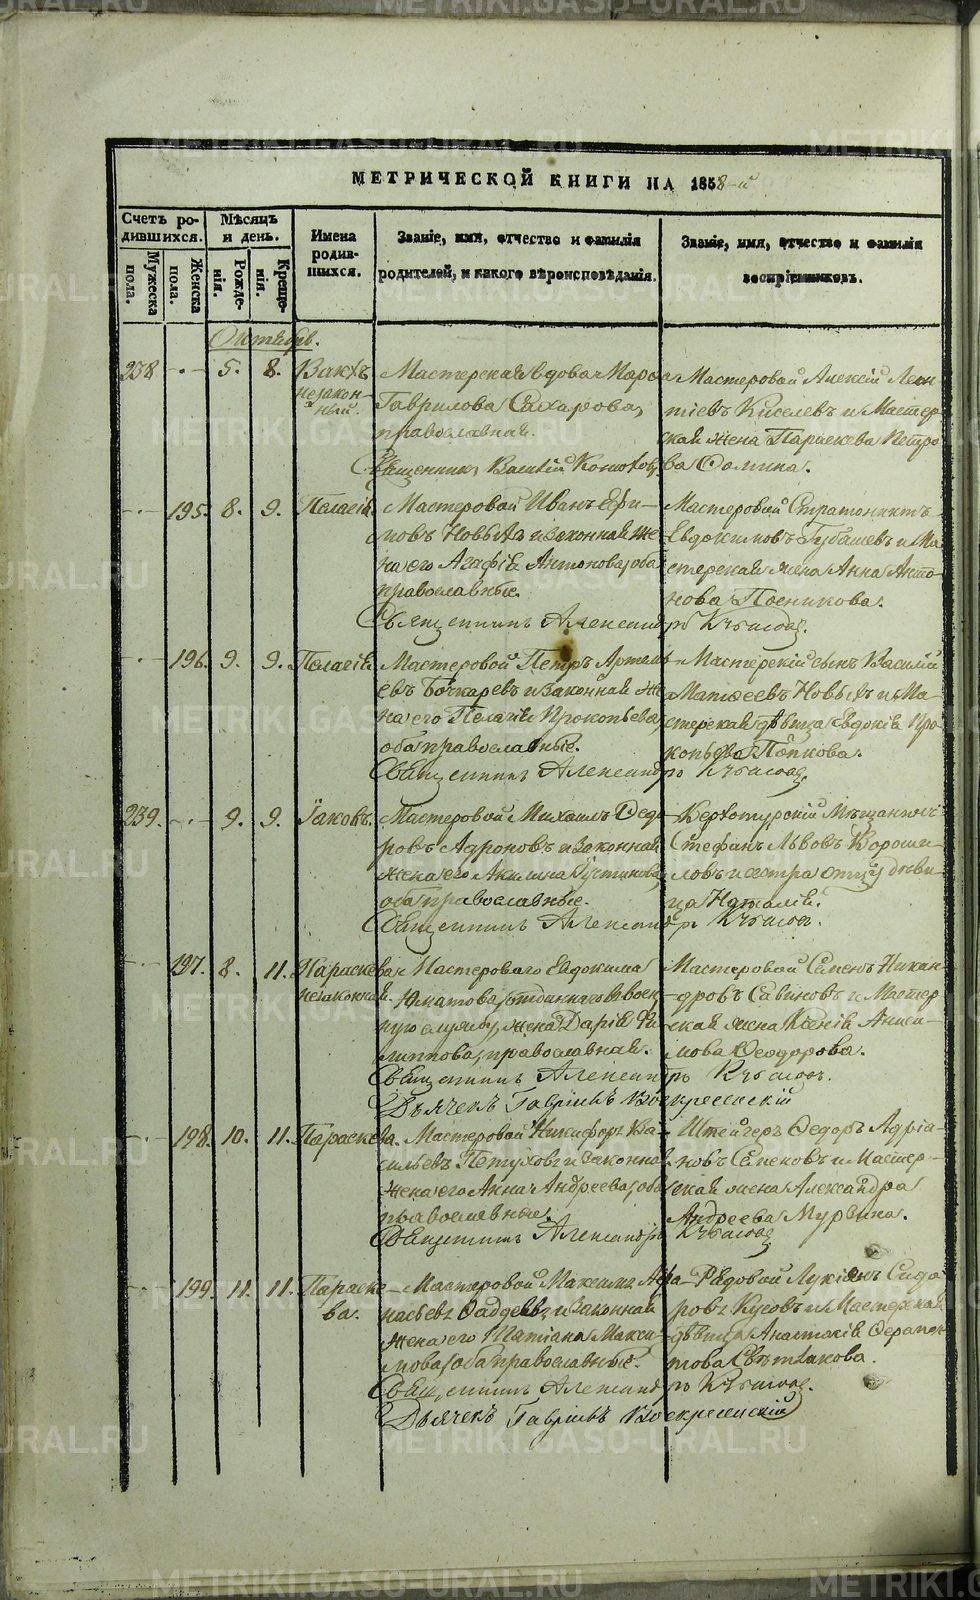 METRIKI.GASO-URAL.RU
МЕТРИЧЕСКОЙ КНИГИ НА 1858-й
Счетъ родившихся.
Мужеска пола.
Женска пола.
Мѣсяцъ и день.
Рожденія.
Крещенія.
Имена родившихся.
Званіе, имя, отчество и фамилія
родителей, и какого вѣроисповѣданія.
Званіе, имя, отчество и фамилія
воспріемниковъ.
Октябрь.
238 5. 8. Вакхъ
незакон-
ный.
Мастерская вдова Марѳа
Гаврилова Сахарова,
православная.
Священникъ Василій
Мастеровой Алексій Леон-
тіевъ Киселевъ и Мастер-
ская жена Параскева Петро-
ва Сомина.
195. 8. 9. Пелагія
Мастеровой Иванъ Ефи-
мовъ Новыхъ и законная же-
на его Агафія Антонова, оба
православные.
Священникъ Александръ
Мастеровой Стратоникъ
Евдокимовъ Губашевъ и Ма-
стерская жена Анна Анто-
нова Посникова.
196. 9. 9. Пелагія
Мастеровой Петръ Артемь-
евъ Бочкаревъ и законная же-
на его Пелагія Прокопьева,
оба православные.
Священникъ Александръ
Мастерскій сынъ Василій
Матѳеевъ Новыхъ и Ма-
стерская дѣвица Евдокія Про-
копьева Попкова.
239. 9. 9. Іаковъ.
Мастеровой Михаилъ Ѳедо-
ровъ Адроновъ и законная
жена его Акилина Іустинова,
оба православные.
Священникъ Александръ
Верхотурскій Мѣщанинъ
Стефанъ Львовъ Вороши-
ловъ и сестра отцу дѣви-
ца Наталія.
197. 8. 11. Параскева
незаконная.
Мастероваго Евдокима
Юматова, отданнаго въ воен-
ную службу, жена Дарія Фи-
липпова, православная.
Священникъ Александръ
Дьячекъ Гавріилъ Воскресенскій
Мастеровой Семенъ Никан-
дровъ Савиновъ и Мастер-
ская жена Ксенія Аниси-
мова Ѳеодорова.
198. 10. 11. Параскева.
Мастеровой Никифоръ Ва-
сильевъ Петуховъ и законная
жена его Анна Андреева, оба
православные.
Священникъ Александръ
Штейгеръ Ѳедоръ Адріа-
новъ Семеновъ и Мастер-
ская жена Александра
Андреева Мурзина.
199. 11. 11. Параске-
ва.
Мастеровой Максимъ Аѳа-
насьевъ Ѳаддеевъ и законная
жена его Татіана Макси-
мова, оба православные.
Священникъ Александръ
Дьячекъ Гавріилъ Воскресенскій
Рядовой Лукіянъ Сидо-
ровъ Кусовъ и Мастерская
дѣвица Анастасія Ферапон-
това Свѣтлакова.